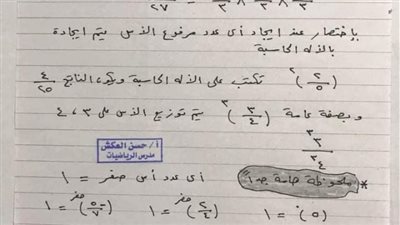 ٢٧ ٣ ٨ ٣ ٨ ٣
باختصار عند إيجاد أى عدد مرفوع الأس يتم إيجادة
بالآلة الحاسبة
(٢/٥)^٢ تكتب على الآلة الحاسبة ويكون الناتج ٤/٢٥
وبصفة عامة (٣/٤)^٣ يتم توزيع الأس على ٣ ، ٤
٣^٣/٤^٣
أ / حسن العكش
مدرس الرياضيات
* ملحوظة هامة جداً أى عدد أس صفر = ١
(٥)^٠ = ١ (٢/٤)^صفر = ١ (-٥/٧)^صفر = ١